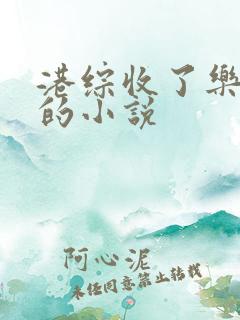 港综收了樂
的小説
阿心泥
未经同意禁止转载